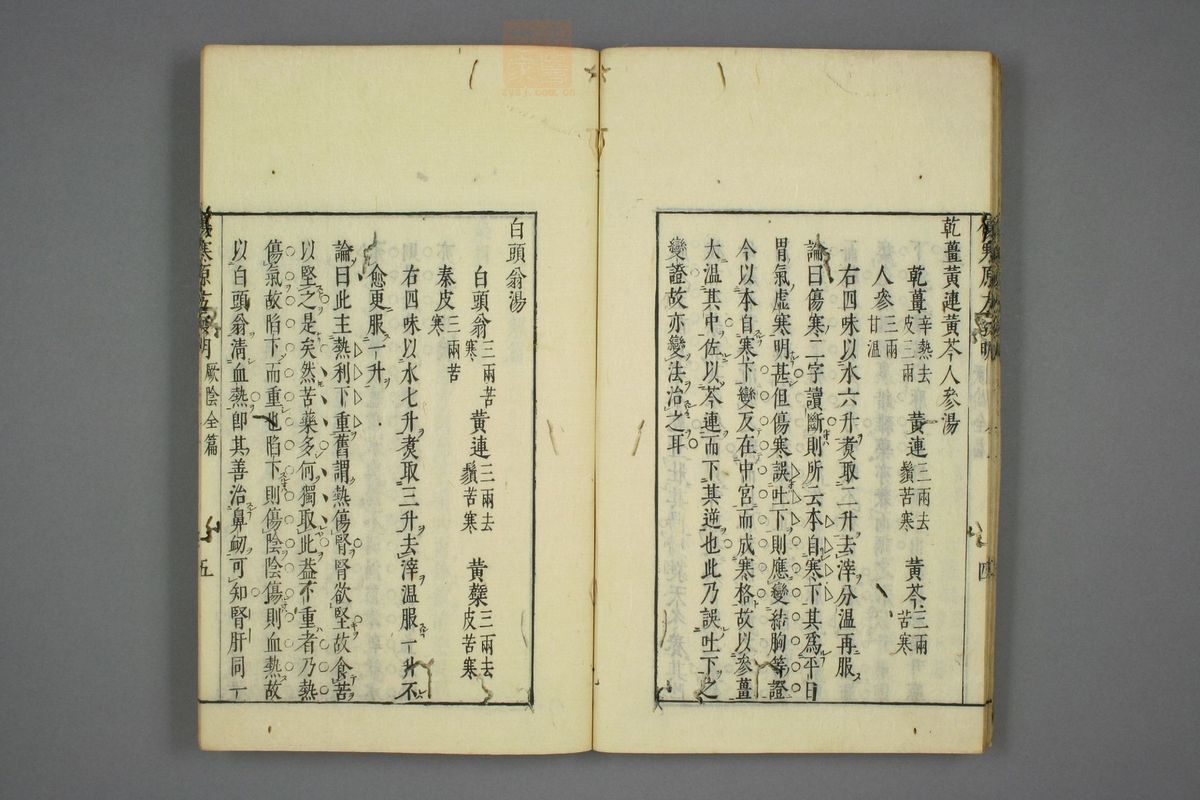 乾薑黃連黃芩人參湯
乾薑辛熱去皮三兩 黃連三兩去鬚苦寒 黃芩三兩苦寒
人參三兩甘溫
右四味以水六升煑取二升去滓分溫再服
論曰傷寒二字讀斷則所云本自寒下其爲平日
胃氣虛寒明甚但傷寒誤吐下則應變結胸等證
今以本自寒下變反在中宮而成寒格故以參薑
大溫其中佐以芩連而下其逆也此乃誤吐下之
變證故亦變法治之耳
四
白頭翁湯
白頭翁三兩苦寒 黃連三兩去鬚苦寒 黃蘗三兩去皮苦寒
秦皮三兩苦寒
右四味以水七升煑取三升去滓溫服一升不
愈更服一升
論曰此主熱利下重舊謂熱傷腎腎欲堅故食苦
以堅之是矣然苦藥多何獨取此葢下重者乃熱
傷氣故陷下而重也陷下則傷陰陰傷則血熱故
以白頭翁淸血熱卽其善治鼻衂可知腎肝同一
傷寒原方發明 厥陰全篇 五